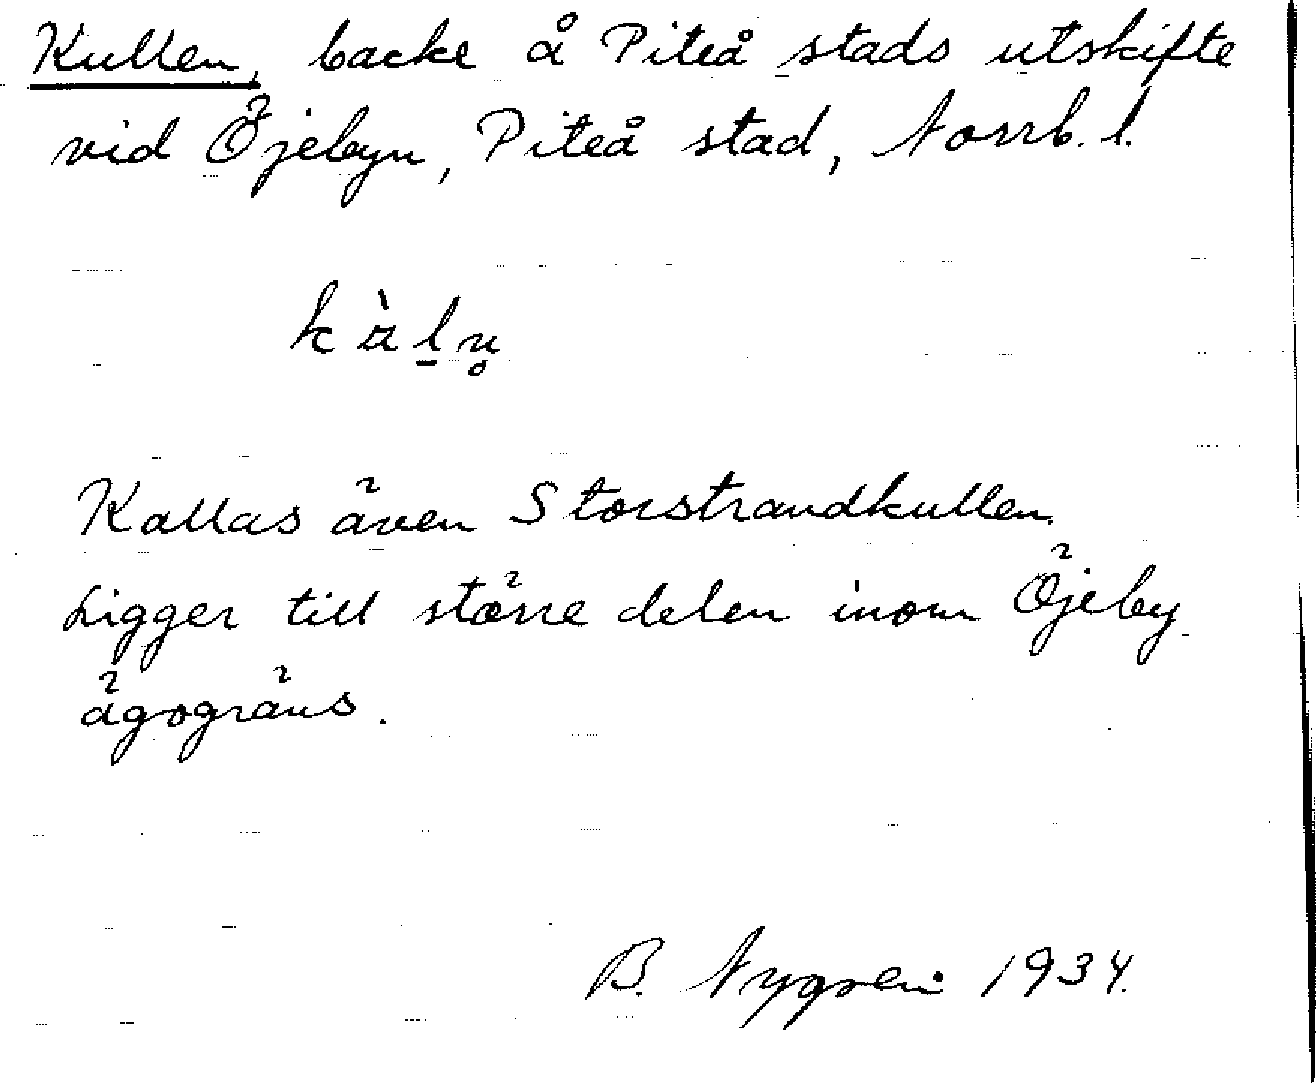 Kullen, backe å Piteå stads utskifte
vid Öjebyn, Piteå stad, Norrb. l.
Kallas även Storstrandkullen.
Ligger till större delen inom Öjeby
ägogräns.
B. Nygren 1934.